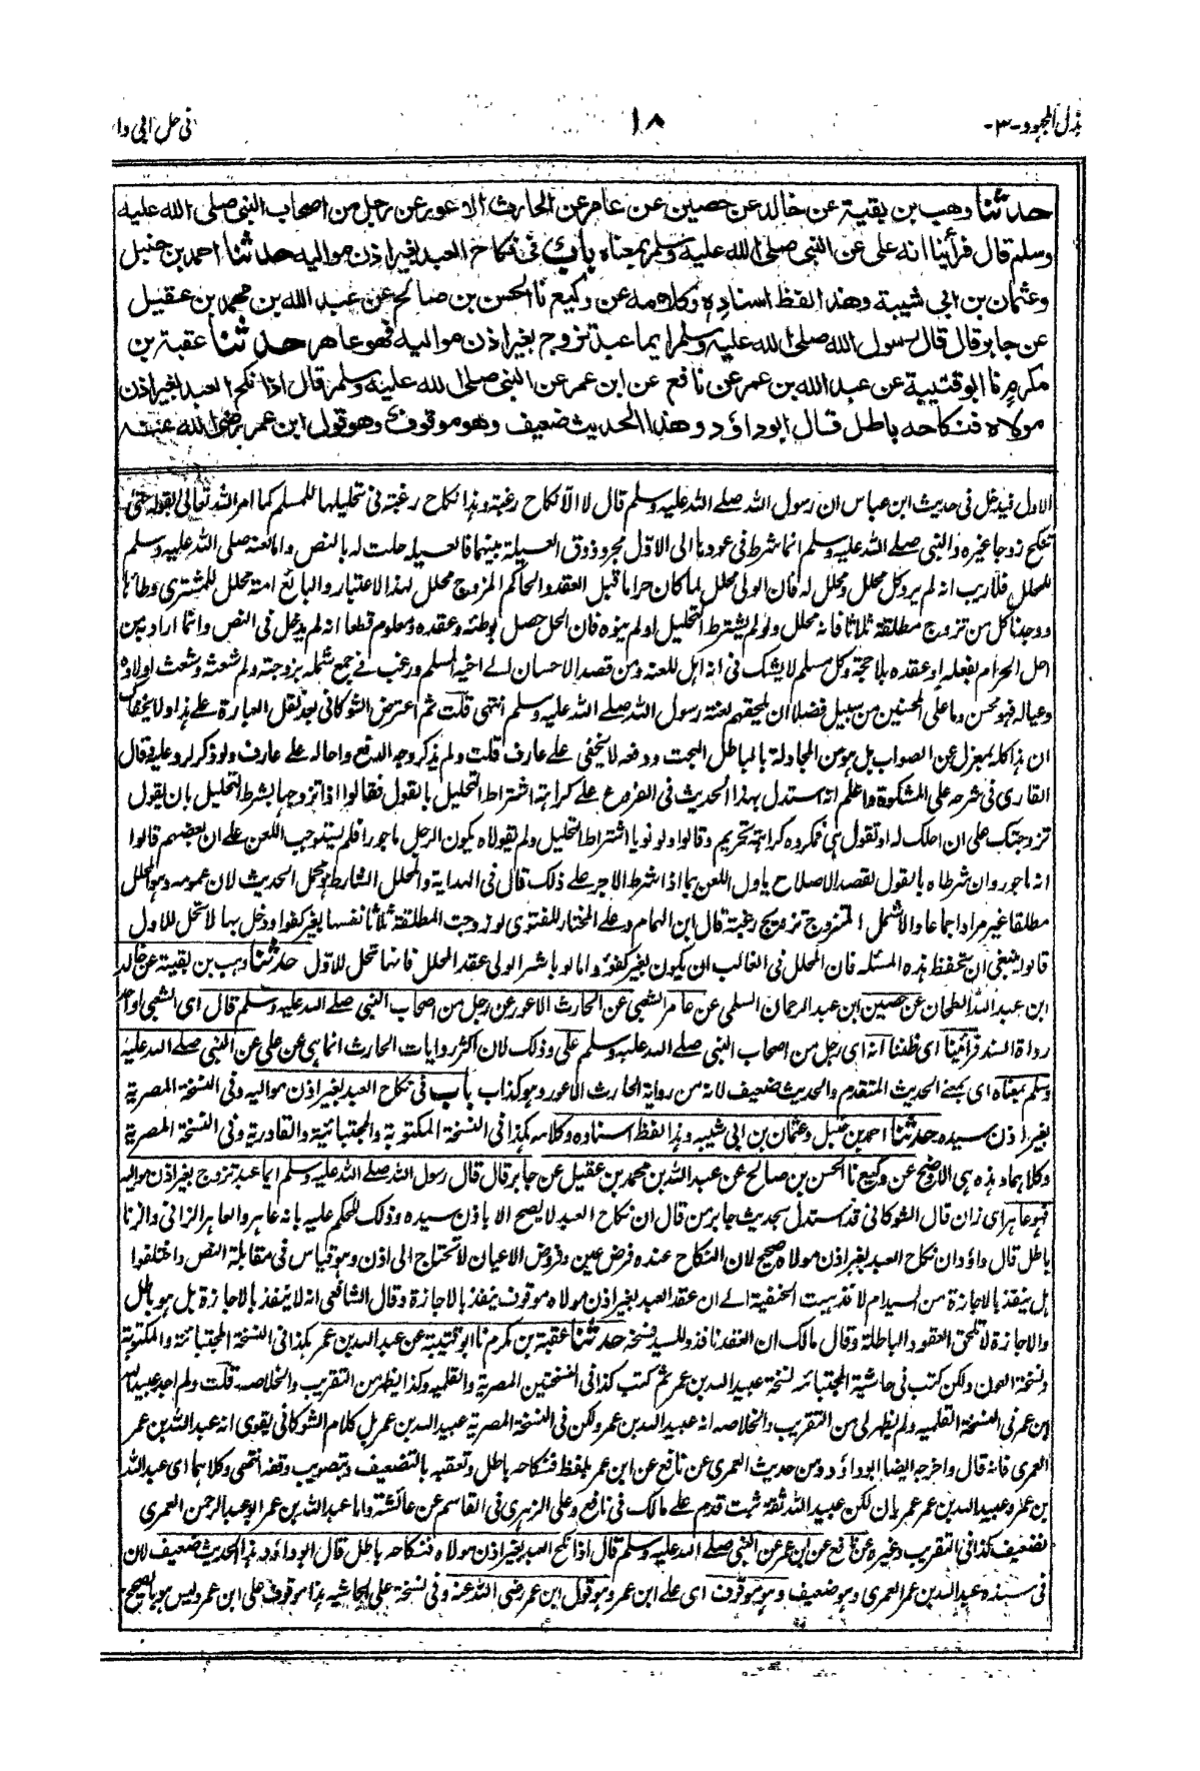 بذل المجهود -٣-
١٨
في حل ابي دا
حدثنا وهب بن بقية عن خالد عن حصين عن عامر عن الحارث الاعور عن رجل من اصحاب النبي صلى الله عليه
وسلم قال فرأينا انه علي عن النبي صلى الله عليه وسلم بمعناه باب في نكاح العبد بغير اذن مواليه حدثنا احمد بن حنبل
وعثمان بن ابي شيبة وهذا لفظ اسناده وكلامه عن وكيع نا الحسن بن صالح عن عبد الله بن محمد بن عقيل
عن جابر قال قال رسول الله صلى الله عليه وسلم ايما عبد تزوج بغير اذن مواليه فهو عاهر حدثنا عقبة بن
مكرم نا ابو قتيبة عن عبد الله بن عمر عن نافع عن ابن عمر عن النبي صلى الله عليه وسلم قال اذا نكح العبد بغير اذن
مولاه فنكاحه باطل قال ابو داؤد وهذا الحديث ضعيف وهو موقوف وهو قول ابن عمر رضي الله عنه
الاول فيدخل في حديث ابن عباس ان رسول الله صلے الله عليه وسلم قال لا الا نكاح رغبة وهذا نكاح رغبة في تحليلها للمسلم كما امر الله تعالى بقوله حتى
تنكح زوجا غيره والنبي صلے الله عليه وسلم انما شرط في عودها الى الاول مجرد ذوق العسيلة بينهما فالعسيلة حلت له بالنص واما لعنه صلى الله عليه وسلم
للمحلل فلا ريب انه لم يرد كل محلل ومحلل له فان الولي محلل لما كان حراما قبل العقد والحاكم المزوج محلل بهذا الاعتبار والبائع امته محلل للمشتري وطأها
ووجدنا كل من تزوج مطلقة ثلاثا فانه محلل ولو لم يشترط التحليل او لم ينوه فان الحل حصل بوطئه وعقده ومعلوم قطعا انه لم يدخل في النص وانما اراد من
احل الحرام بفعله او عقده بلا حجة وكل مسلم لا يشك في انه اهل للعنه ومن قصد الاحسان الے اخيه المسلم ورغب في جمع شمله بزوجته ولم شعثه وشعث اولاده
وعياله فهو محسن وما على المحسنين من سبيل فضلا ان يلحقهم لعنة رسول الله صلے الله عليه وسلم انتهى قلت ثم اعترض الشوكاني بعد نقل العبارة علے هذا ولا يخفاك
ان هذا كله بمعزل عن الصواب بل هو من المجادلة بالباطل البحت ودفعه لا يخفى علے عارف قلت ولم يذكر وجه الدفع واحاله علے عارف ولو ذكر لرد عليه قال
القاري في شرحه على المشكوة واعلم انه استدل بهذا الحديث في الفروع علے كراهة اشتراط التحليل بالقول فقالوا اذا تزوجها بشرط التحليل بان يقول
تزوجتك على ان احلك له او تقول هي فمكروه كراهة تحريم وقالوا ولو نويا اشتراط التحليل ولم يقولاه يكون الرجل ماجورا فلم يستوجب اللعن علے ان بعضهم قالوا
انه ماجور وان شرطاه بالقول لقصد الاصلاح ياول اللعن بما اذا شرط الاجر علے ذلك قال في الهداية والمحلل الشارط هو محمل الحديث لان عمومه وهو المحلل
مطلقا غير مراد اجماعا والا شمل المتزوج تزويج رغبة قال ابن الهمام وعلے المختار للفتوى لو زوجت المطلقة ثلاثا نفسها بغير كفوا ودخل بها لا تحل للاول
قالوا ينبغي ان تحفظ هذه المسئله فان المحلل في الغالب ان يكون بغير كفؤ واما لو باشر الولي عقد المحلل فانها تحل للاول حدثنا وهب بن بقية عن خالد
ابن عبد الله الطحان عن حصين ابن عبد الرحمان السلمي عن عامر الشعبي عن الحارث الاعور عن رجل من اصحاب النبي صلے الله عليه وسلم قال اي الشعبي او احد
رواة السند فرأينا اي ظننا انه اي رجل من اصحاب النبي صلے الله عليه وسلم علي وذلك لان اكثر روايات الحارث انما هي عن علي عن النبي صلے الله عليه
وسلم بمعناه اي بمعنے الحديث المتقدم والحديث ضعيف لانه من رواية الحارث الاعور وهو كذاب باب في نكاح العبد بغير اذن مواليه وفي النسخة المصرية
بغير اذن سيده حدثنا احمد بن حنبل وعثمان بن ابي شيبه وهذا لفظ اسناده وكلامه هكذا في النسخة المكتوبة والمجتبائية والقادرية وفي النسخة المصرية
وكلاهما وهذه هي الاوضح عن وكيع نا الحسن بن صالح عن عبد الله بن محمد بن عقيل عن جابر قال قال رسول الله صلے الله عليه وسلم ايما عبد تزوج بغير اذن مواليه
فهو عاهر اي زان قال الشوكاني قد استدل بحديث جابر من قال ان نكاح العبد لا يصح الا باذن سيده وذلك للحكم عليه بانه عاهر والعاهر الزاني والزنا
باطل قال داؤد ان نكاح العبد بغير اذن مولاه صحيح لان النكاح عنده فرض عين وفروض الاعيان لا تحتاج الى اذن وهو قياس في مقابلة النص واختلفوا
هل ينفذ بالاجازة من السيد ام لا فذهبت الحنفية الے ان عقد العبد بغير اذن مولاه موقوف ينفذ بالاجازة وقال الشافعي انه لا ينفذ بالاجازة بل هو باطل
والاجازة لا تلحق العقود الباطلة وقال مالك ان العقد نافذ وللسيد فسخه حدثنا عقبة بن مكرم نا ابو قتيبة عن عبد الله بن عمر هكذا في النسخة المجتبائية والمكتوبة
ونسخة العون ولكن كتب في حاشية المجتبائيه نسخة عبيد الله بن عمر ثم كتب كذا في النسختين المصرية والقلميه وكذا يظهر من التقريب والخلاصه قلت ولم اجد عبيد الله
ابن عمر في النسخة القلميه ولم يظهر لي من التقريب والخلاصه انه عبيد الله بن عمر ولكن في النسخة المصرية عبيد الله بن عمر بل كلام الشوكاني يقوى انه عبد الله بن عمر
العمري فانه قال واخرجه ايضا ابو داؤد من حديث العمري عن نافع عن ابن عمر بلفظ فنكاحه باطل وتعقبه بالتضعيف وبتصويب وقفه انتهى وكلاهما اي عبد الله
بن عمر وعبيد الله بن عمر عمريان لكن عبيد الله ثقة ثبت قدم علے مالك في نافع وعلى الزهري في القاسم عن عائشة واما عبد الله بن عمر ابو عبد الرحمن العمري
فضعيف كذا في التقريب وغيره عن نافع عن ابن عمر عن النبي صلے الله عليه وسلم قال اذا نكح العبد بغير اذن مولاه فنكاحه باطل قال ابو داؤد هذا الحديث ضعيف لان
في سنده عبد الله بن عمر العمري وهو ضعيف وهو موقوف اي علے ابن عمر وهو قول ابن عمر رضي الله عنه وفي نسخة على الحاشيه هذا موقوف على ابن عمر وليس هو بالصحيح